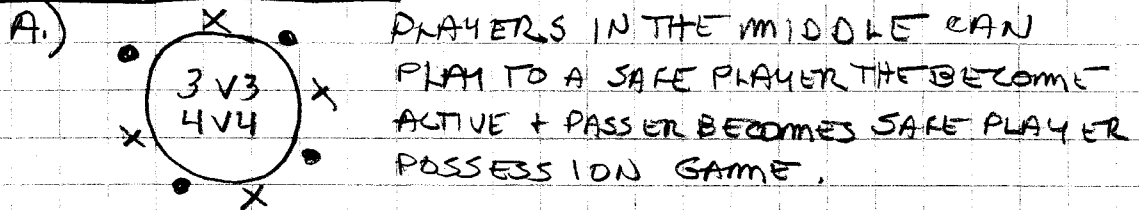 A.)
X
X
3 V 3
4 V 4
X
X
PLAYERS IN THE MIDDLE CAN
PLAY TO A SAFE PLAYER THE BECOME
ACTIVE + PASSER BECOMES SAFE PLAYER
POSSESSION GAME.